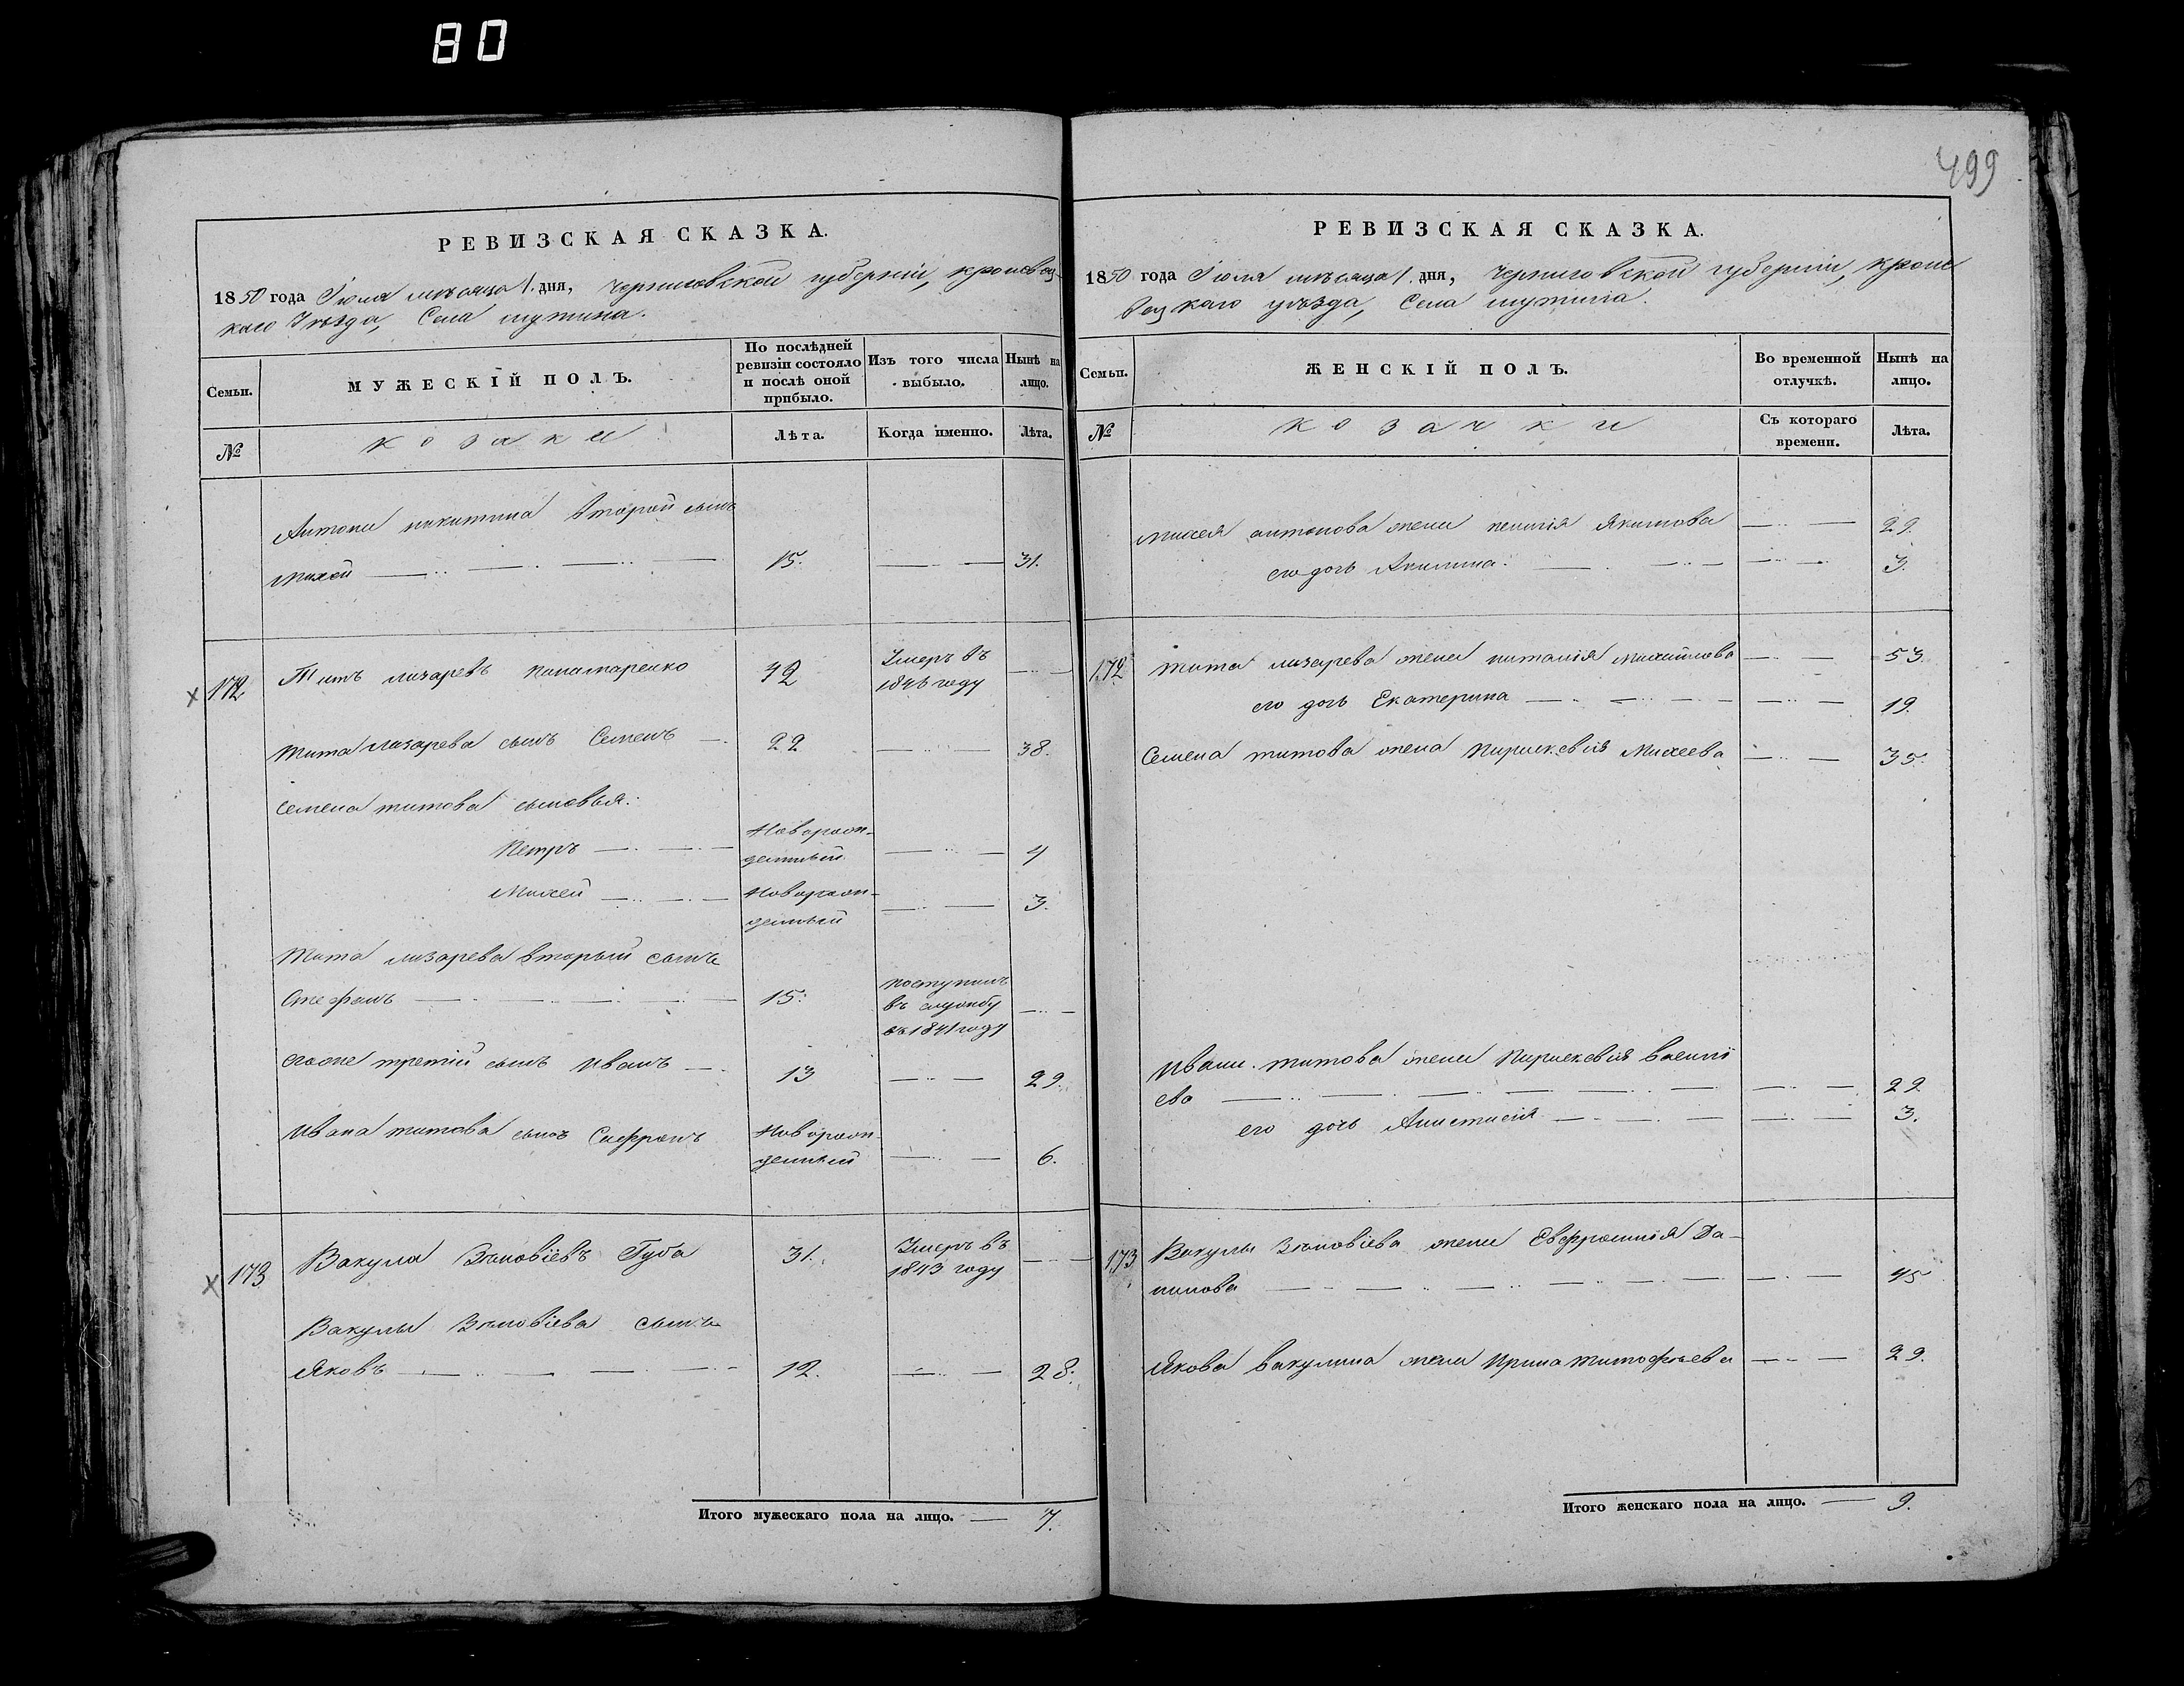 80
499
РЕВИЗСКАЯ СКАЗКА.
1850 года Іюля мѣсяца 1. дня, Черниговской губерніи, кролевец-
каго Уѣзда, Села мутина.
Семьи.
МУЖЕСКІЙ ПОЛЪ.
По послѣдней
ревизіи состояло
и послѣ оной
прибыло.
Изъ того числа
выбыло.
Нынѣ на
лицо.
№
козаки
Лѣта.
Когда именно.
Лѣта.
Антона никитина второй сынъ
Михей 15. 31.
172 Титъ лазаревъ 42 Умеръ въ
1846 году
Тита лазарева сынъ Семенъ 22 38.
Семена титова сыновья:
Петръ Новорож-
денный 4
Михей Новорож-
денный 3.
Тита лазарева вторый сынъ
Стефанъ 15. поступилъ
въ службу
въ 1841 году
Егоже третій сынъ Иванъ 13 29.
Ивана титова сынъ Новорож-
денный 6.
173 Вакула Зѣновіевъ Губа 31. Умеръ въ
1843 году
Вакулы Зѣновіева сынъ
Яковъ 12. 28.
Итого мужескаго пола на лицо. 7.
РЕВИЗСКАЯ СКАЗКА.
1850 года Іюля мѣсяца 1. дня, Черниговской губерніи, кроле
вецкаго уѣзда, Села мутина.
Семьи.
ЖЕНСКІЙ ПОЛЪ.
Во временной
отлучкѣ.
Нынѣ на
лицо.
№
козачки
Съ котораго
времени.
Лѣта.
Михея антонова жена Якимова 29.
его дочь Акилина. 3.
172 Тита лазарева жена наталія Михайлова 53
его дочь Екатерина 19.
Семена титова жена Параскевія Михеева 35.
Ивана титова жена Параскевія Василі
ева 29.
его дочь Анастасія 3.
173 Вакулы Зѣновіева жена Евфросинія Да-
нилова 45
Якова вакулина жена Ирина Тимофѣева 29.
Итого женскаго пола на лицо. 9.